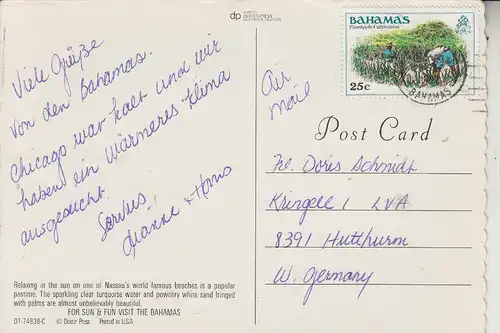 Viele Grüße
von den Bahamas.
Chicago war kalt und wir
haben ein wärmeres Klima
ausgesucht.
Servus,
Dianne + Hans
Air
mail
BAHAMAS
Pineapple Cultivation
25c
BAHAMAS
Post Card
Doris Schmidt
Kringell 1
8391 Hutthurm
W. Germany
Relaxing in the sun on one of Nassau's world famous beaches is a popular
pastime. The sparkling clear turquoise water and powdery white sand fringed
with palms are almost unbelievably beautiful.
FOR SUN & FUN VISIT THE BAHAMAS
DT-74838-C © Dexter Press Printed in U.S.A.
dp